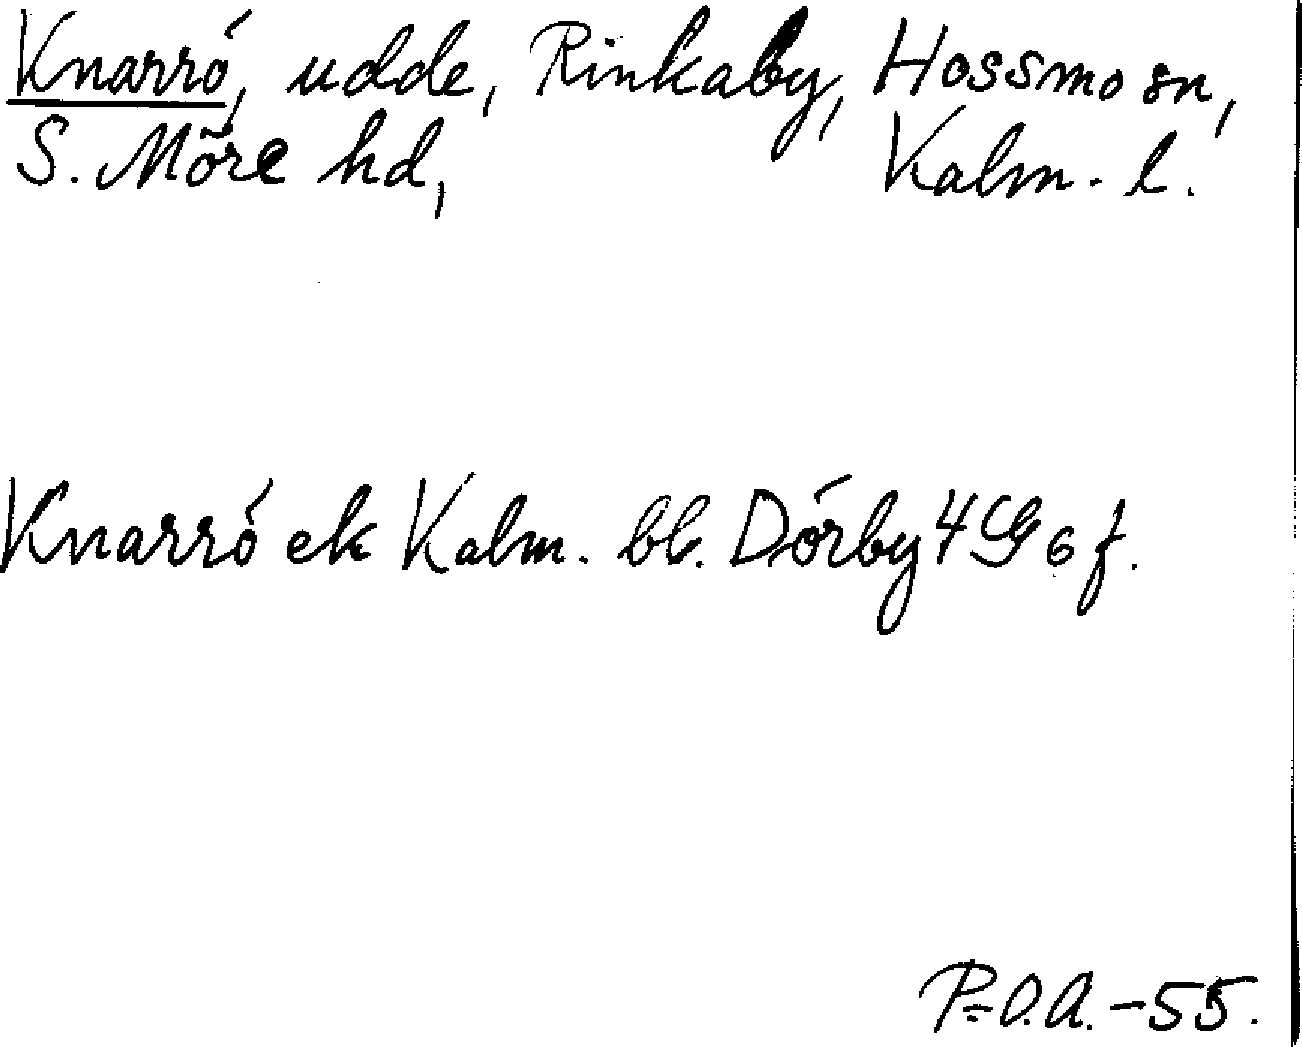 Knarrö, udde, Rinkaby, Hossmo sn,
S. Möre hd, Kalm. l.
Knarrö ek Kalm. bl. Dörby 4 G 6 f.
P.O.A. -55.